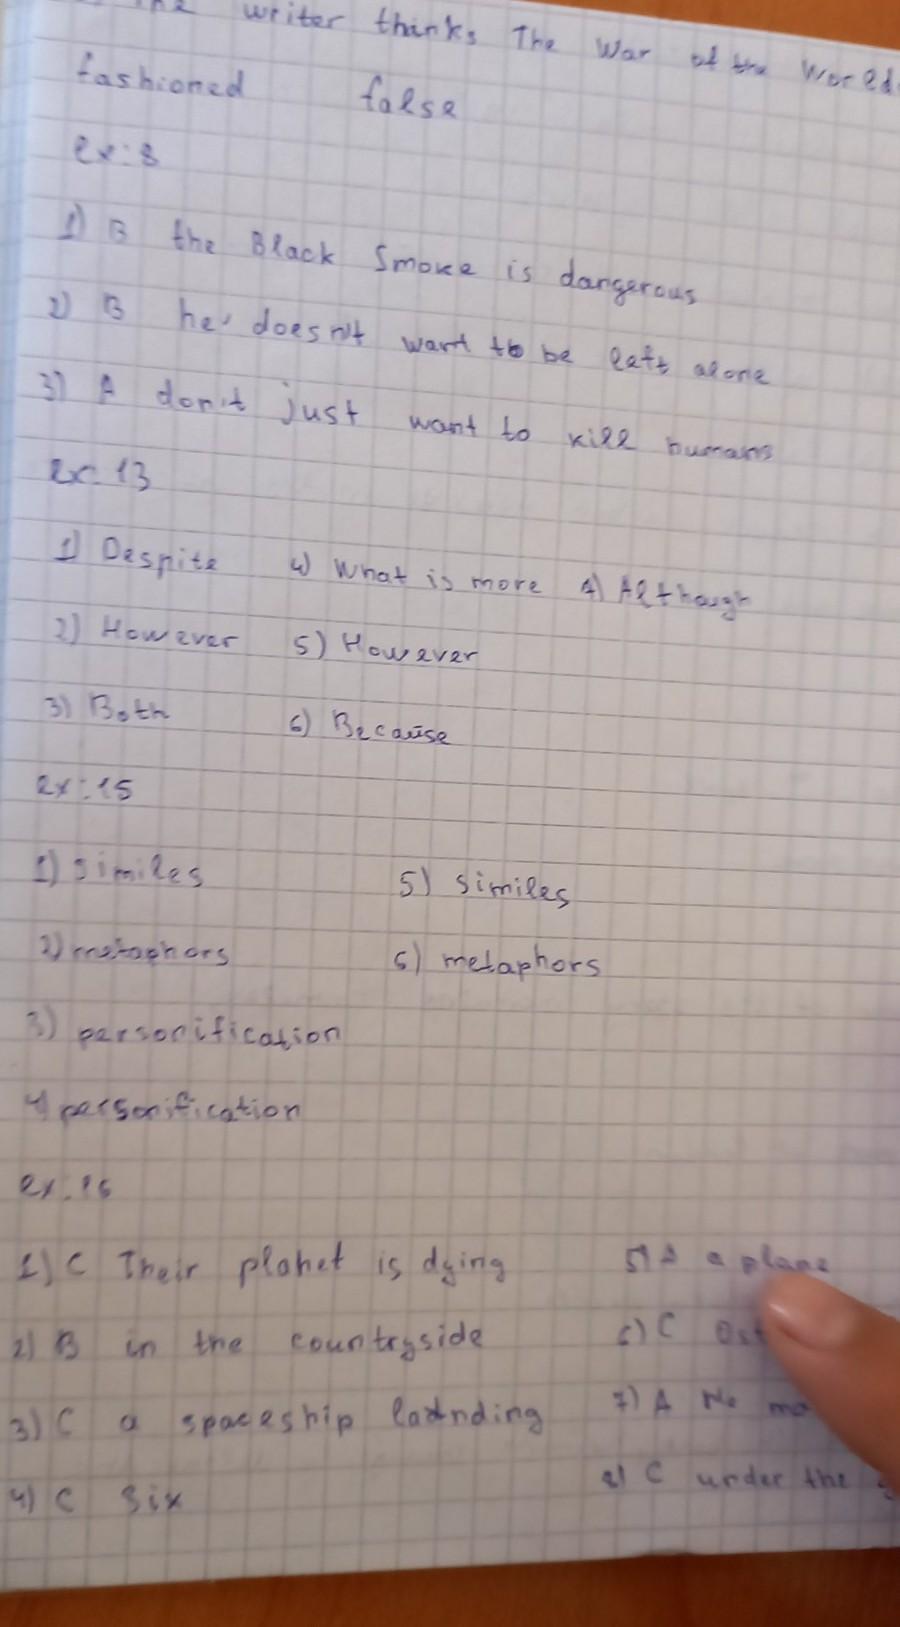 writer thinks The War of the Worlds
fashioned false
ex: 8
1) B the Black Smoke is dangerous
2) B he doesn't want to be left alone
3) A don't just want to kill humans
ex: 13
1) Despite 4) What is more 4) Although
2) However 5) However
3) Both 6) Because
ex: 15
1) similes 5) similes
2) metaphors 6) metaphors
3) personification
4) personification
ex. 16
1) C Their planet is dying 5) A a plane
2) B in the countryside 6) C
3) C a spaceship landing 7) A No
4) C six 8) C under the